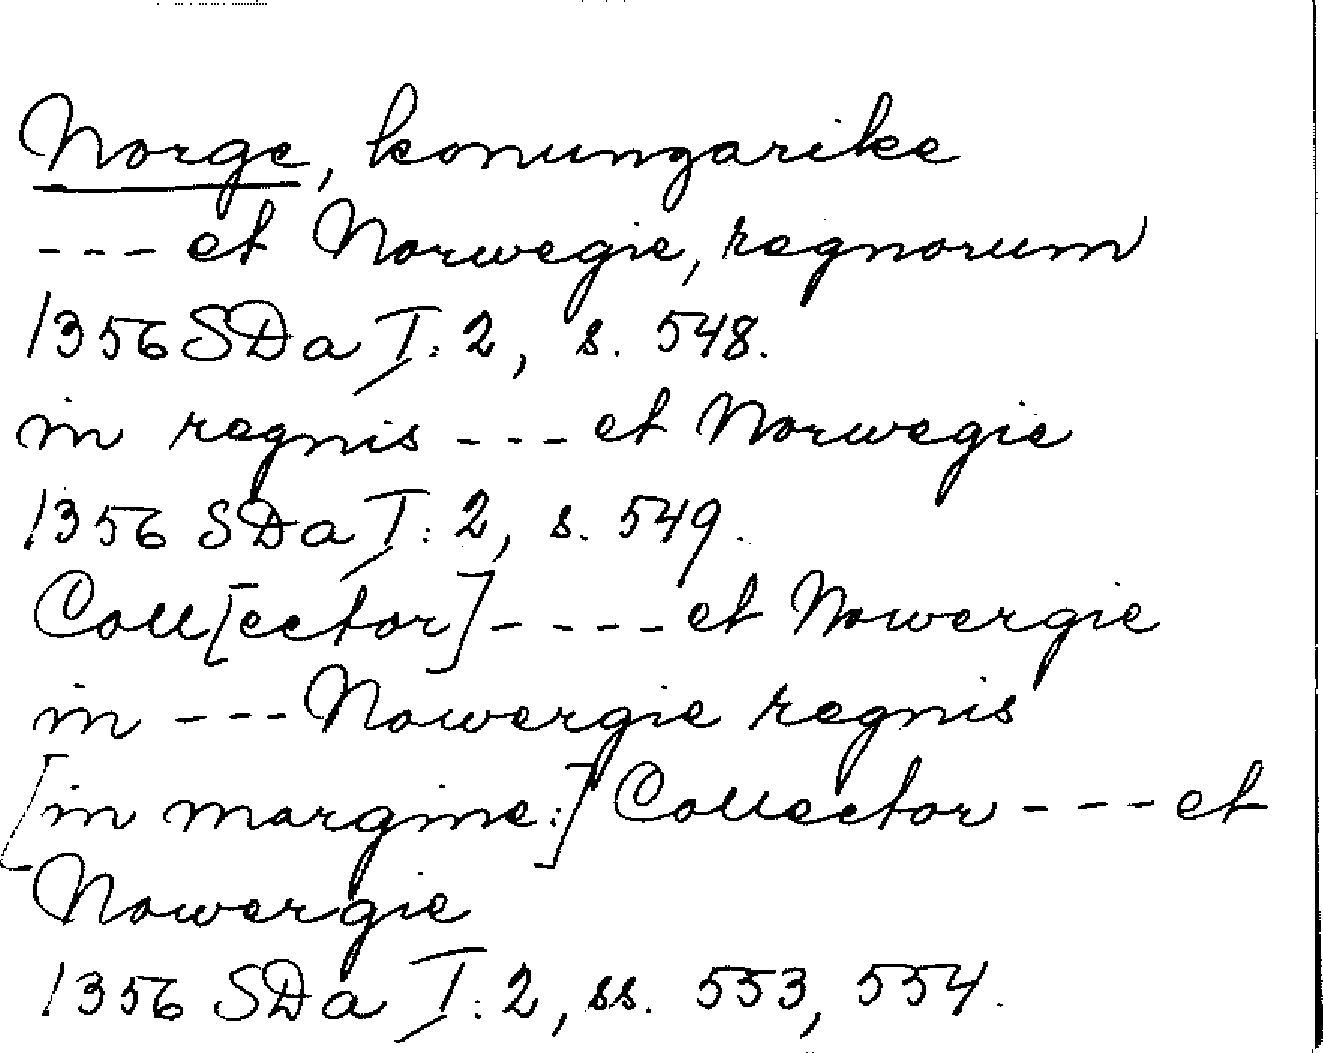 Norge, konungarike
--- et Norwegie, regnorum
1356 SDa I:2, s. 548.
in regnis --- et Norwegie
1356 SDa I:2, s. 549.
Coll[ector] ---- et Nowergie
in --- Nowergie regnis
[in margine:] Collector --- et
Nowergie
1356 SDa I:2, ss. 553, 554.